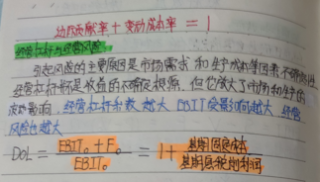 边际贡献率 + 变动成本率 = 1
经营杠杆与经营风险
引起风险的主要原因是市场需求和生产成本等因素不确定性
经营杠杆不是收益的不确定根源，但它放大了市场和生产的
波动影响，经营杠杆系数越大 EBIT变动幅度越大 经营
风险也越大
DOL = EBIT₀ + F₀ / EBIT₀ = 1 + 基期固定成本 / 基期息税前利润